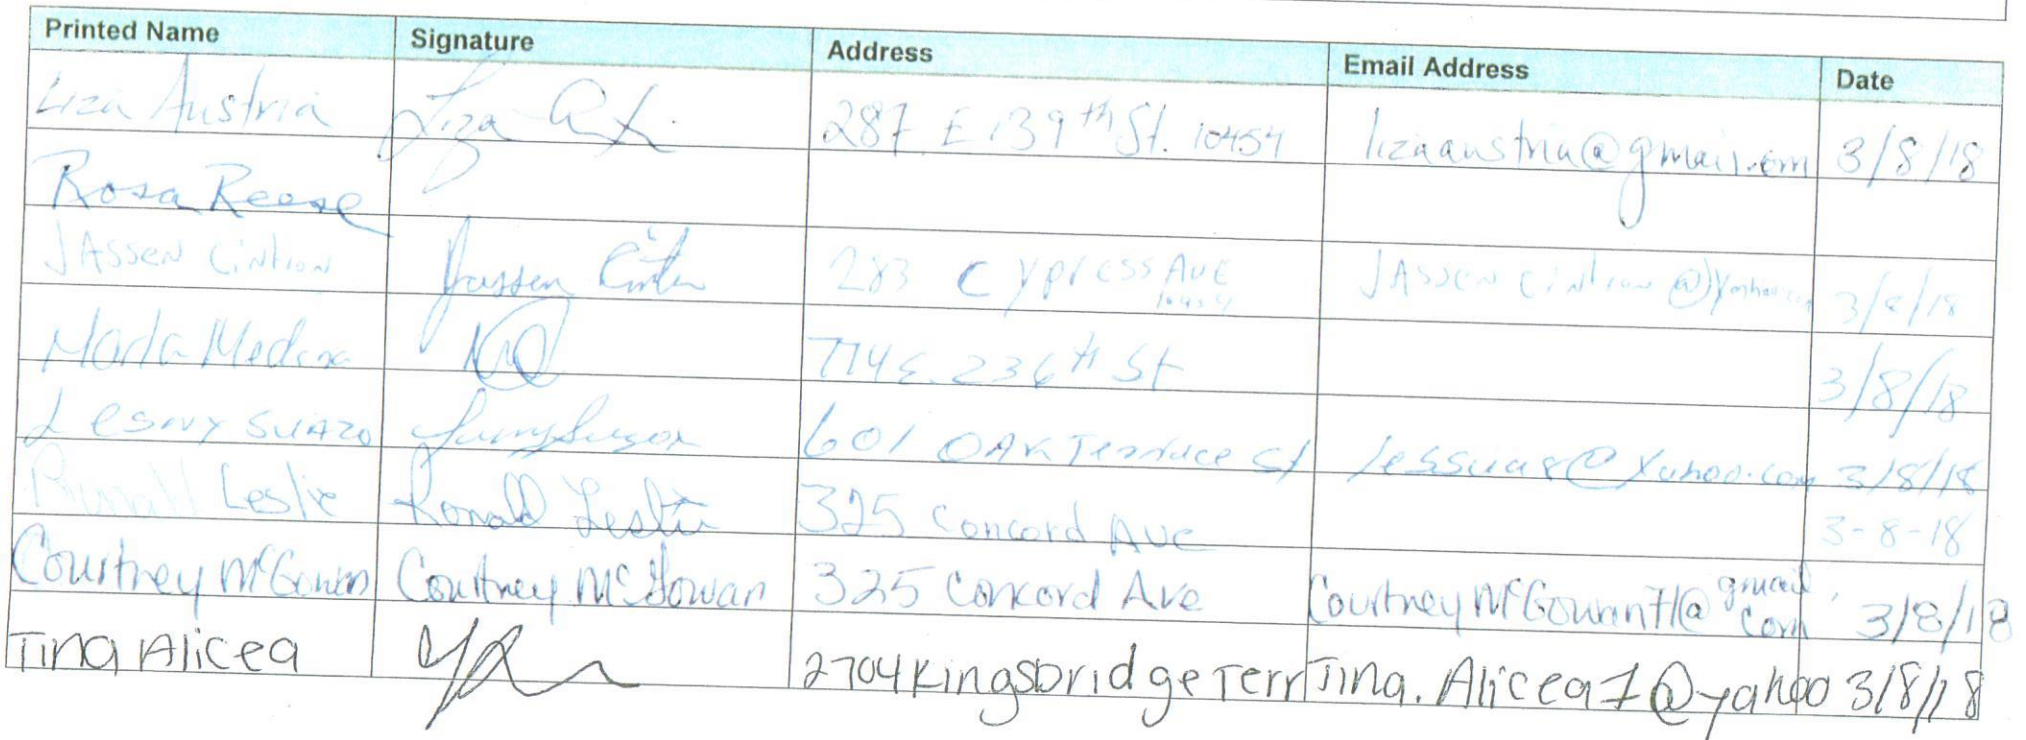 Printed Name Signature Address Email Address Date
Liza Austria Liza 287 E 139th St. 10454 lizaaustria@gmail.com 3/8/18
Rosa Reese
JASSEN CiNtroN Jassen 283 Cypress AVE 10454 JASSEN CiNtron @yahoo.com 3/8/18
Marla Medina 774 E. 236th St 3/8/18
LESNY SUAZO 601 OAK Terrace St 3/8/18
Leslie Ronald Leslie 325 Concord AVE 3-8-18
Courtney McGowan Courtney McGowan 325 Concord Ave CourtneyMcGowan71@gmail.com 3/8/18
Tina Alicea 2704 Kingsbridge Terr Tina.Alicea1@yahoo 3/8/18